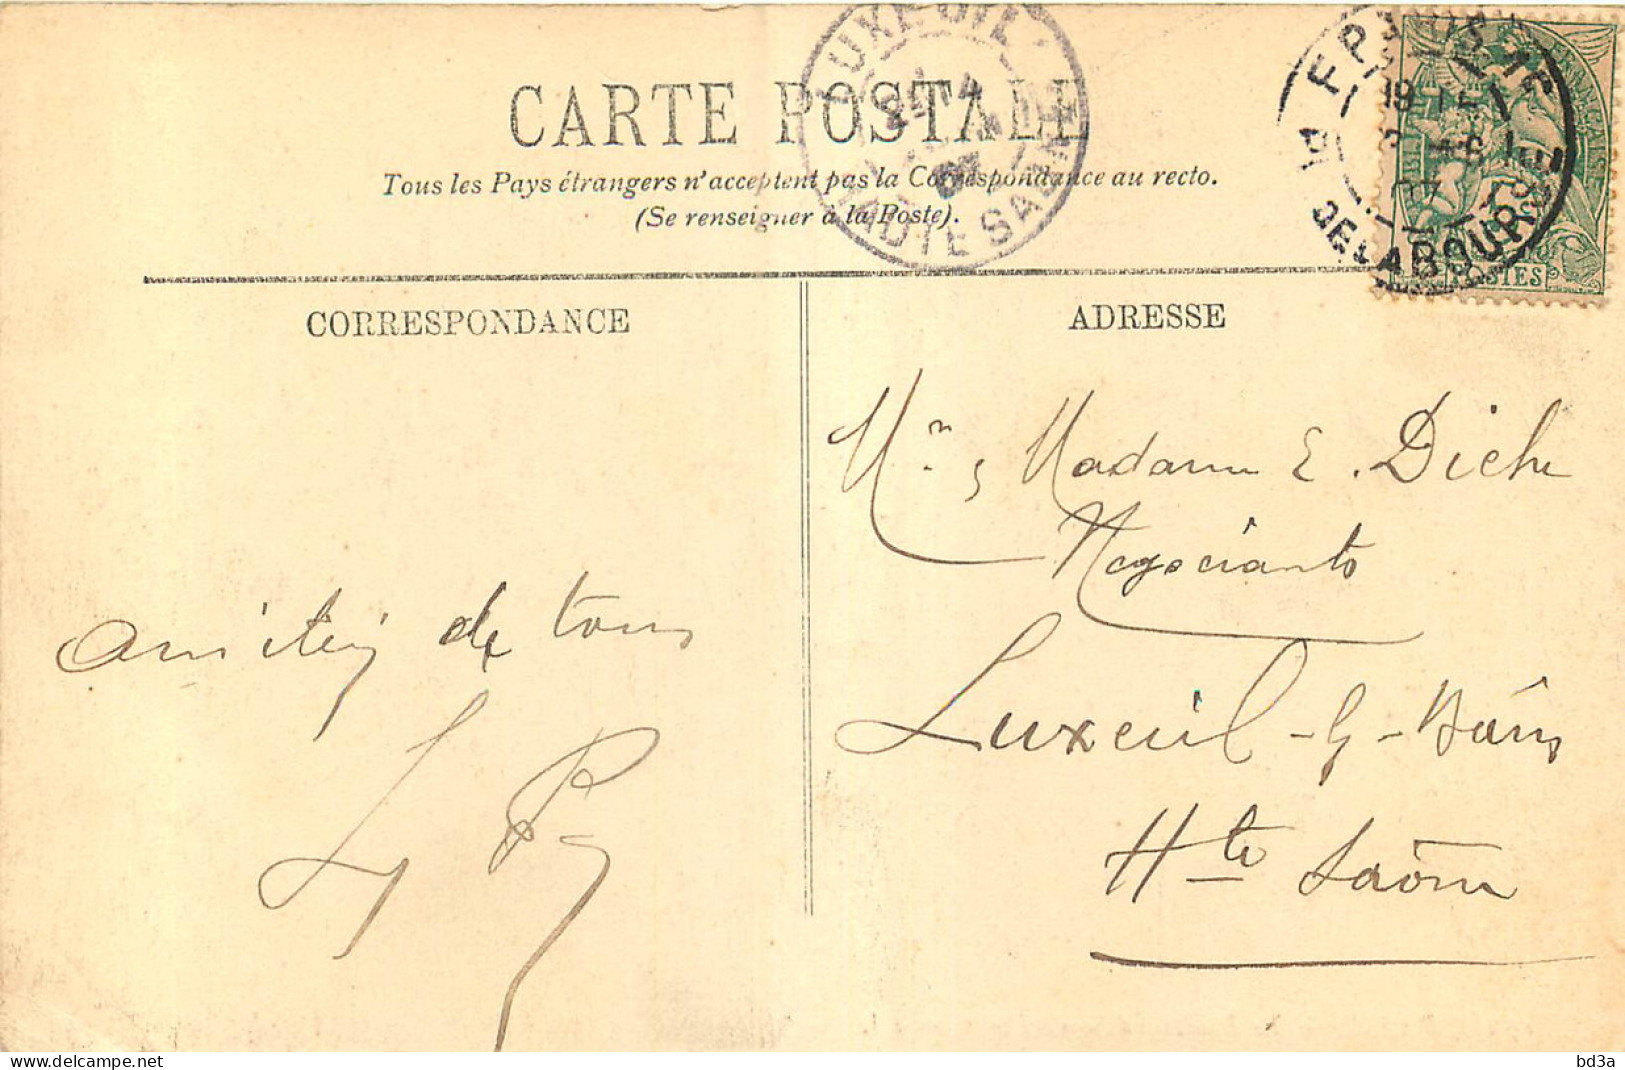 CARTE POSTALE
Tous les Pays étrangers n'acceptent pas la Correspondance au recto.
(Se renseigner à la Poste).
LUXEUIL
HAUTE SAONE
07
DELABOURSE
POSTES
CORRESPONDANCE
ADRESSE
Mr & Madame E. Diche
Negociants
Luxeuil-les-Bains
Hte Saône
amitiés de tous
LP
www.delcampe.net
bd3a